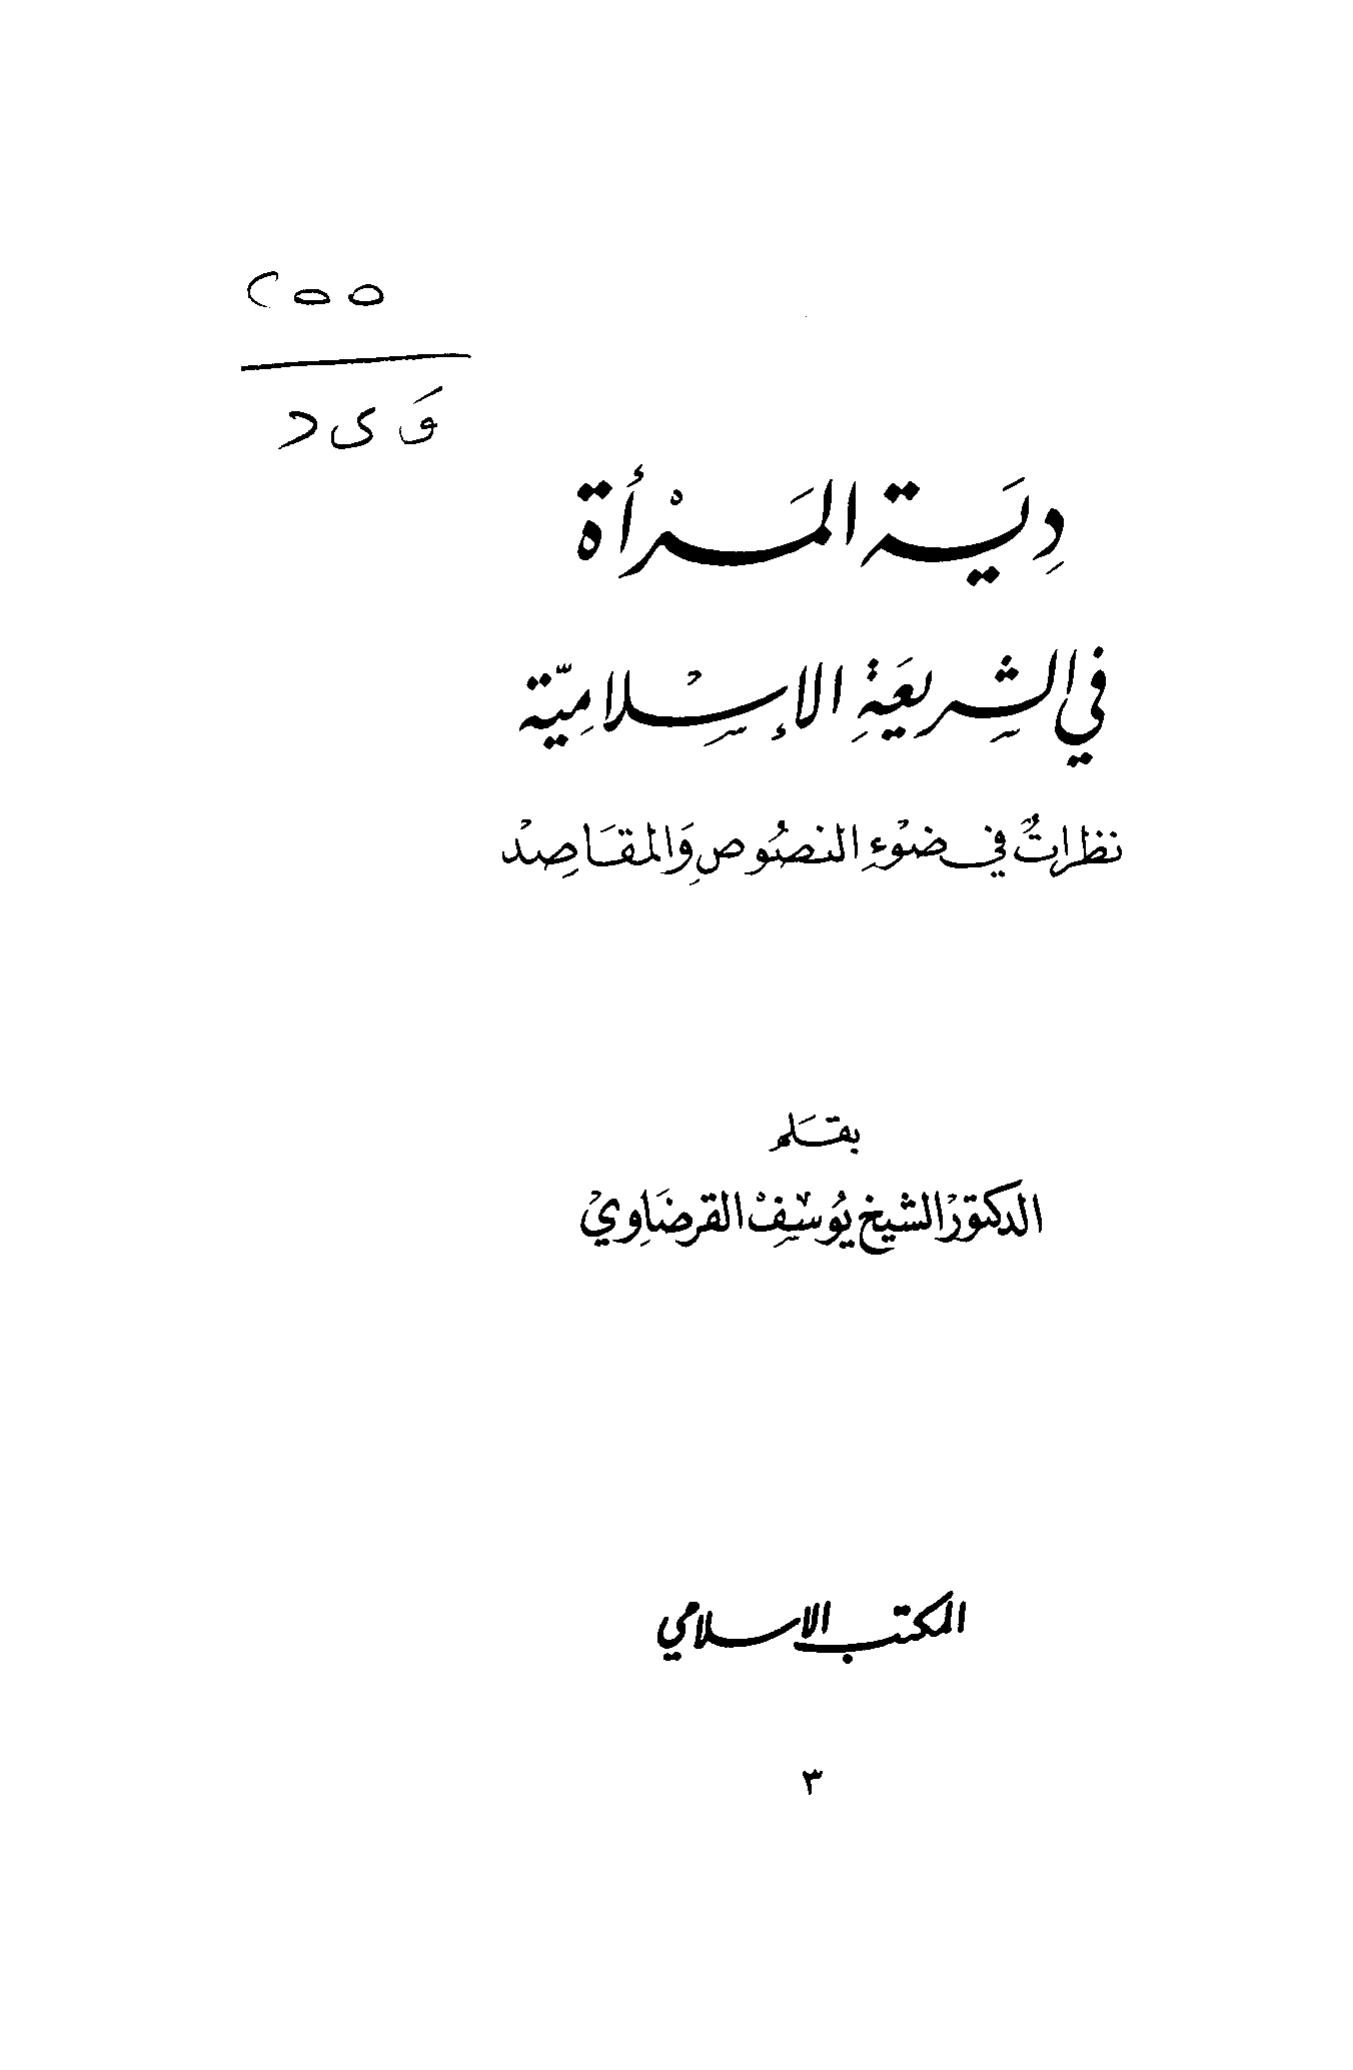 ٢٥٥
و ى د
دِيَة المَرْأة
في الشِريعَةِ الإسْلامِيّة
نظراتٌ في ضوْءِ النصُوصِ وَالمقَاصِدْ
بقَلم
الدكتورْ الشيخ يُوسِفْ القرضَاوِيْ
المكتب الاسلامي
٣